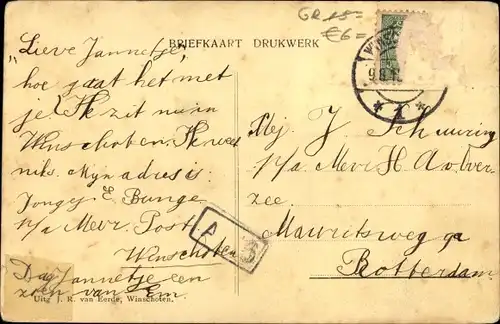 GR 15=
€6=
BRIEFKAART DRUKWERK
"Lieve Jannetje,"
hoe gaat het met
je. Ik zit nu in
Winschoten. Ik weet
niks. Mijn adres is.
Jongej E. Bunge.
p/a Mevr. Post.
Winschoten
Dag Jannetje een
zoen van Em.
Mej. J. Schuuring
p/a Mevr H. A. v. Over-
zee.
Mauritsweg
Rotterdam
A 3
Uitg. J. R. van Eerde, Winschoten.